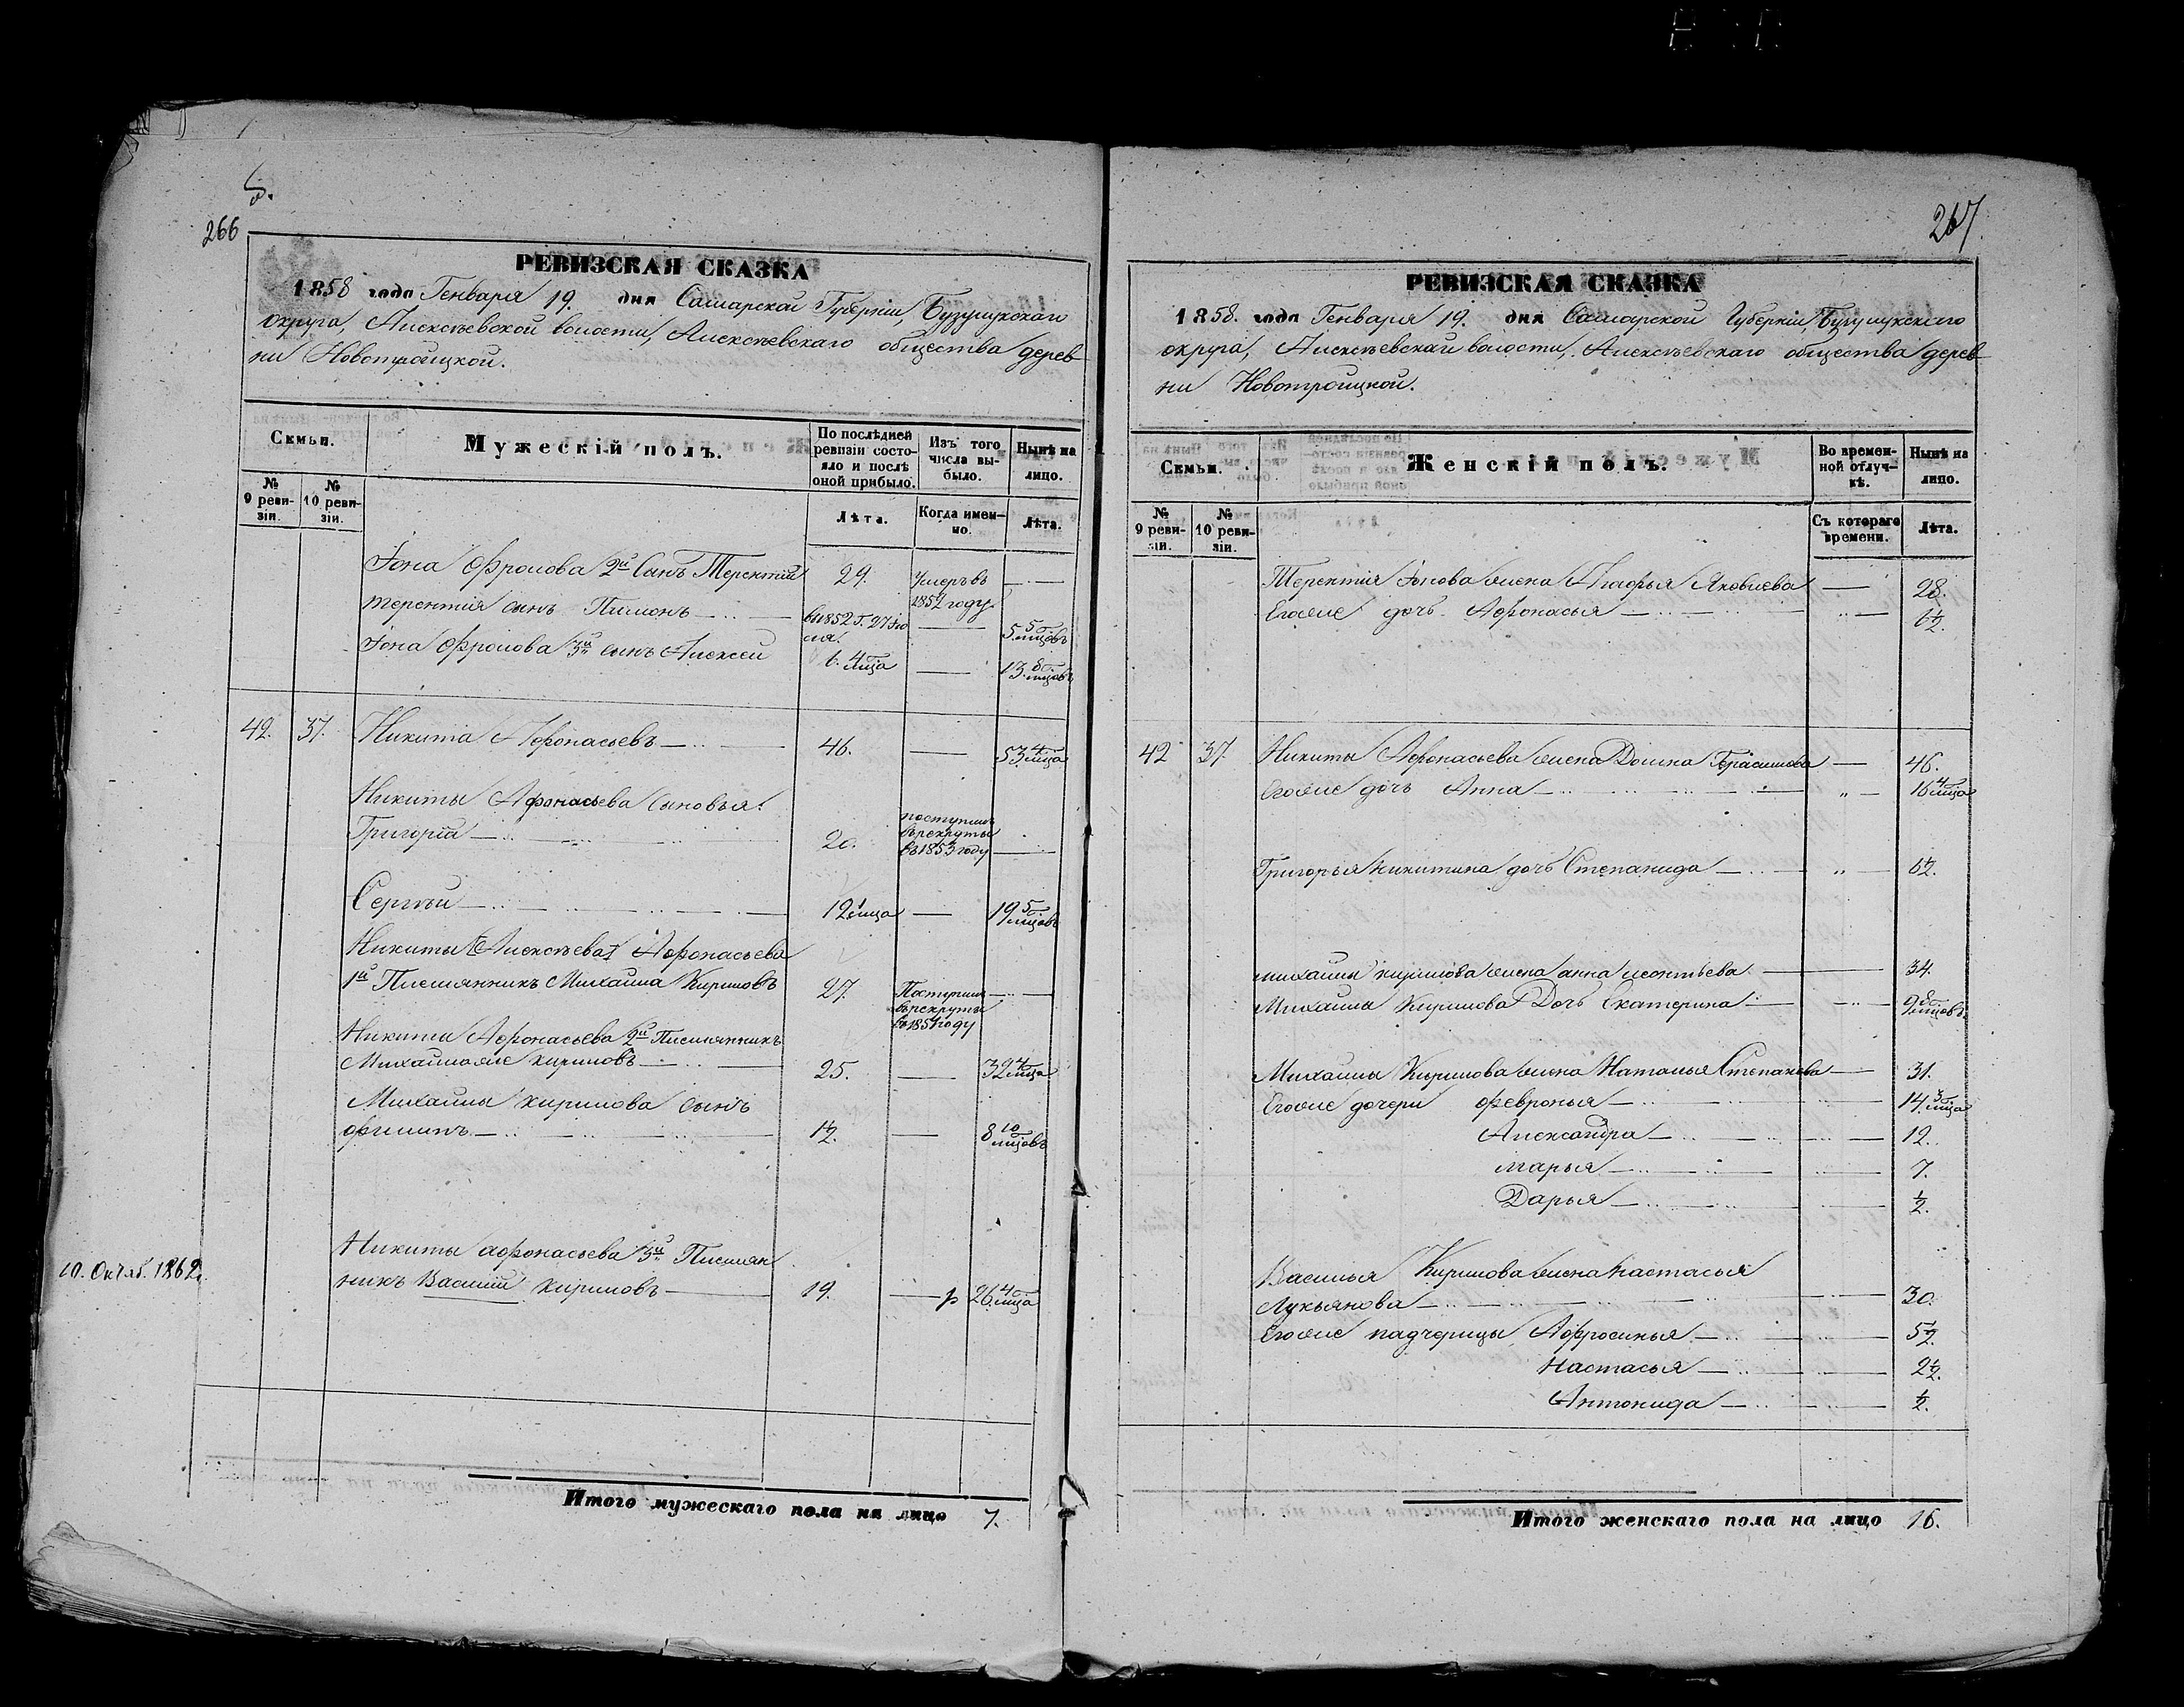 266
РЕВИЗСКАЯ СКАЗКА
1858 года Генваря 19. дня Самарской Губерніи, Бузулукскаго
округа, Алексѣевской волости, Алексѣевскаго общества дерев
ни Новотроицкой.
Семьи.
Мужескій полъ.
По послѣдней ревизіи состояло и послѣ оной прибыло.
Изъ того числа выбыло.
Нынѣ на лицо.
№ 9 ревизіи.
№ 10 ревизіи.
Лѣта.
Когда именно.
Лѣта.
Іона Фролова 2й Сынъ Терентій 29. Умеръ въ 1852 году
терентія сынъ Пименъ въ 1852 г. 27 Ію 5 5/мцовъ
Іона Фролова 3й сынъ Алексей 6. 4/мца 13. 8/мцовъ
42. 37. Никита Афонасьевъ 46. 53 4/мца
Никиты Афонасьева сыновья:
Григорій 20. поступилъ въ рекруты въ 1853 году
Сергѣй 12 1/мца 19 5/мцовъ
Никиты [Алексѣева] Афонасьева
1й Племянникъ Михайла Кириловъ 27. Поступилъ въ рекруты въ 1854 году
Никиты Афонасьева 2й Племянникъ
Михайлаже кириловъ 25. 32 4/мца
Михайлы кирилова сынъ
филипъ 1/2. 8 10/мцовъ
10. Октяб. 1862.
Никиты афонасьева 3й Племян
никъ Василій кириловъ 19. р 26. 4/мца
Итого мужескаго пола на лицо 7.
267.
РЕВИЗСКАЯ СКАЗКА
1858. года Генваря 19. дня Самарской Губерніи Бузулукскаго
округа, Алексѣевской волости, Алексѣевскаго общества дерев
ни Новотроицкой.
Семьи.
Женскій полъ.
Во временной отлучкѣ.
Нынѣ на лицо.
№ 9 ревизіи.
№ 10 ревизіи.
Съ котораго времени.
Лѣта.
Терентія Іонова жена Агафья Яковлева 28.
Егоже дочь Афонасья 6 1/2.
42 37. Никиты Афонасьева жена Домна Герасимова 46.
Егоже дочь Анна 16 4/мца
Григорья Никитина дочь Степанида 6 1/2.
михайлы кирилова жена анна леонтьева 34.
Михайлы Кирилова Дочь Екатерина 9 8/мцовъ
Михайлы Кирилова жена Наталья Степанова 31.
Егоже дочери февронья 14. 3/мца
Александра 12.
марья 7.
Дарья 1/2.
Василья Кирилова жена настасья
Лукьянова 30.
Егоже падчерицы Афросинья 5 1/2.
Настасья 2 1/2.
Антонида 1/2.
Итого женскаго пола на лицо 16.